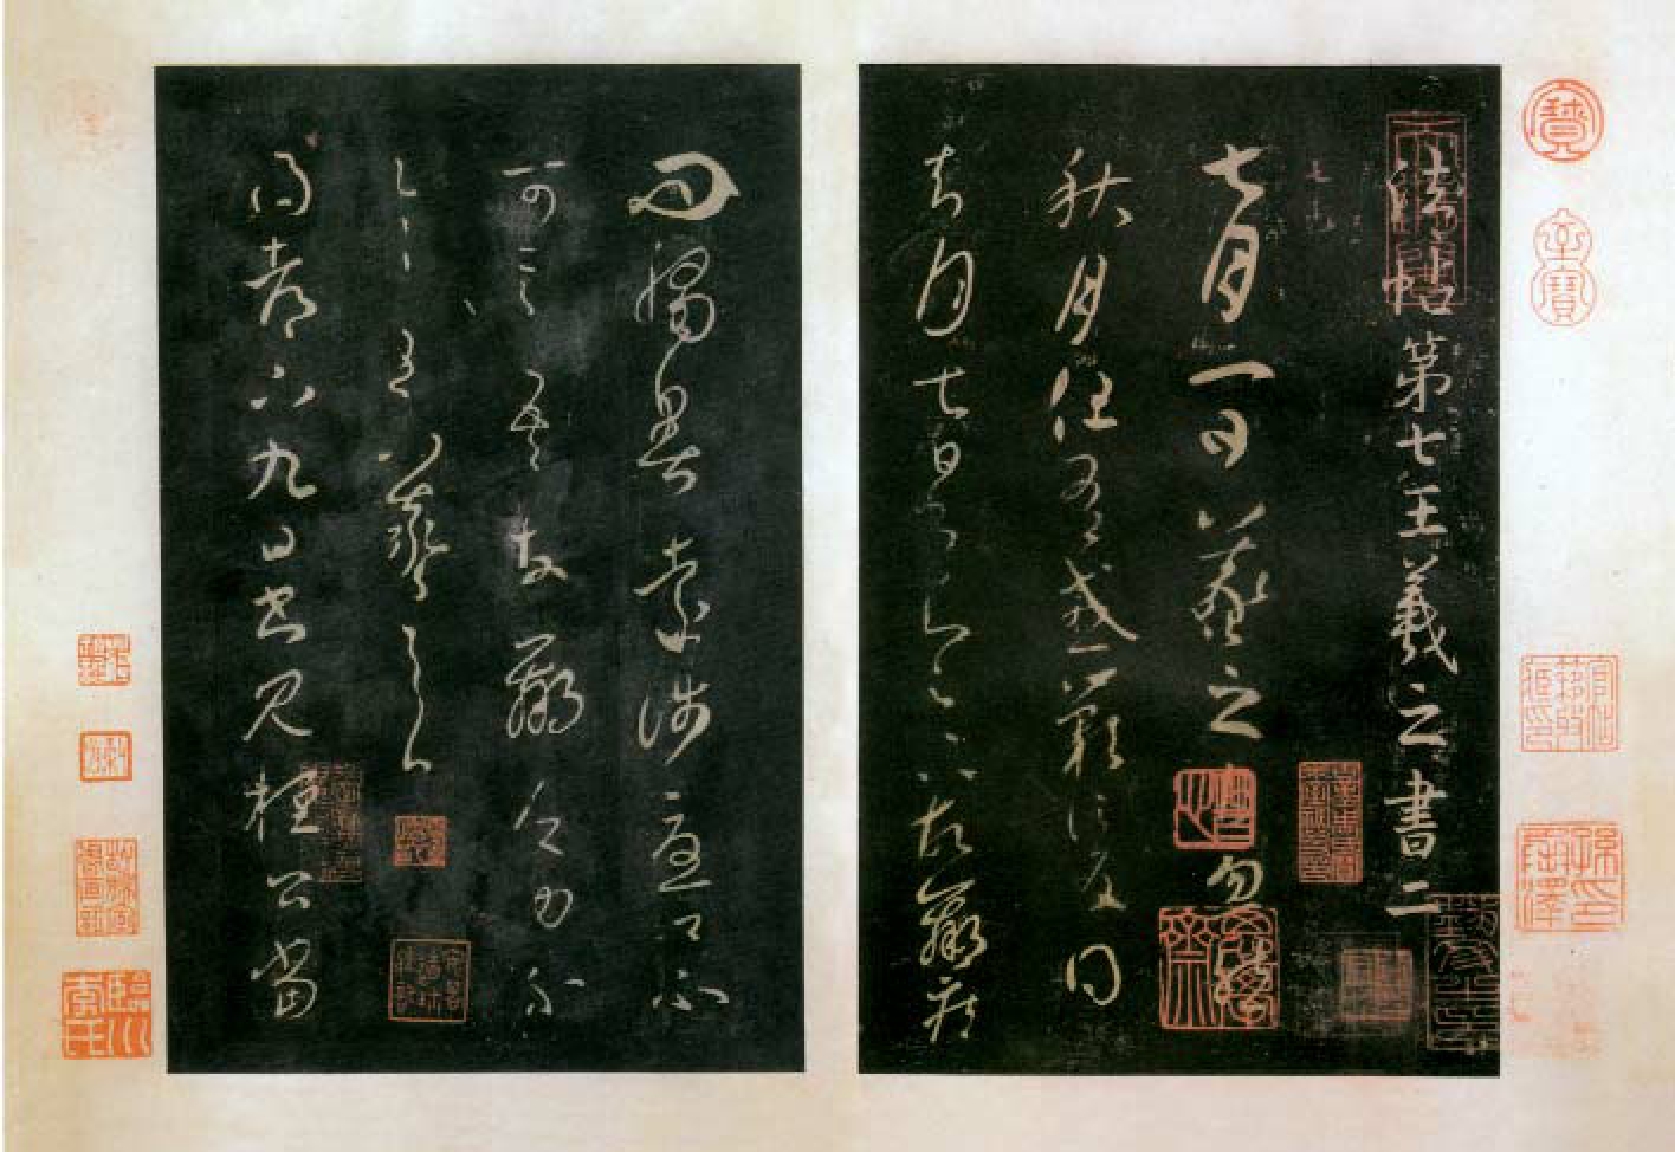 法帖第七王羲之書二
七月一日羲之白忽然
秋月但有感歎信反得
去月七日書知足下故羸疾
問觸暑遠涉憂卿不
可言吾故羸乏力不
具王羲之白
得都下九日書見桓公當